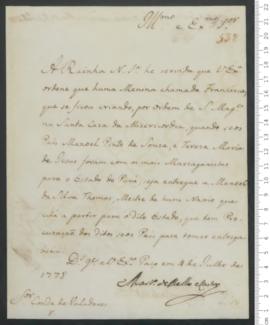 Ill.mo e Ex.mo Snr
A Rainha N. Sr.a he servida que V. Ex.a
ordene que huma Menina chamada Francisca,
que se ficou criando, por ordem de S. Mag.e
na Santa Caza da Mizericordia, quando seos
Pais Manoel Pinto de Souza, e Tereza Maria
de Jezus foram com os mais Mazaganistas
para o Estado do Pará, seja entregue a Manoel
da Silva Thomas, Mestre de hum Navio que
está a partir para o dito Estado, que tem Pro-
curação dos ditos seos Pais para tomar entrega
D.s g.e a V. Ex.a Paço em 4 de Julho de
1778
Mart.o de Mello e Castro
Snr Conde de Valadares